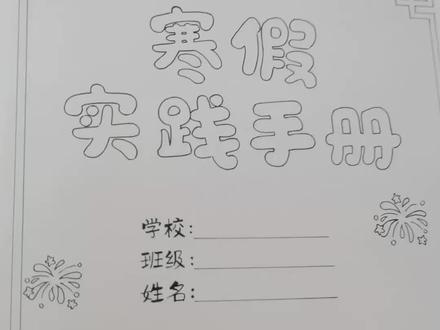 寒假
实践手册
学校:
班级:
姓名: